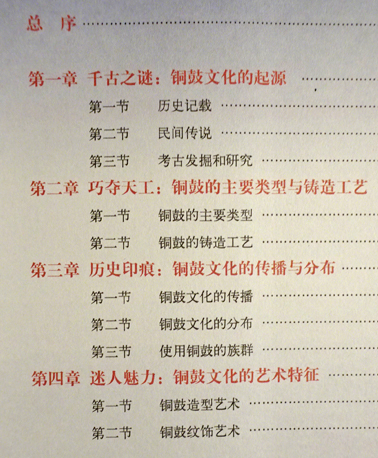 总 序 ……………………
第一章 千古之谜：铜鼓文化的起源 ………
第一节 历史记载 ………………
第二节 民间传说 ………………
第三节 考古发掘和研究 …………
第二章 巧夺天工：铜鼓的主要类型与铸造工艺
第一节 铜鼓的主要类型 …………
第二节 铜鼓的铸造工艺 …………
第三章 历史印痕：铜鼓文化的传播与分布 ……
第一节 铜鼓文化的传播 …………
第二节 铜鼓文化的分布 …………
第三节 使用铜鼓的族群 …………
第四章 迷人魅力：铜鼓文化的艺术特征 ……
第一节 铜鼓造型艺术 ……………
第二节 铜鼓纹饰艺术 ……………